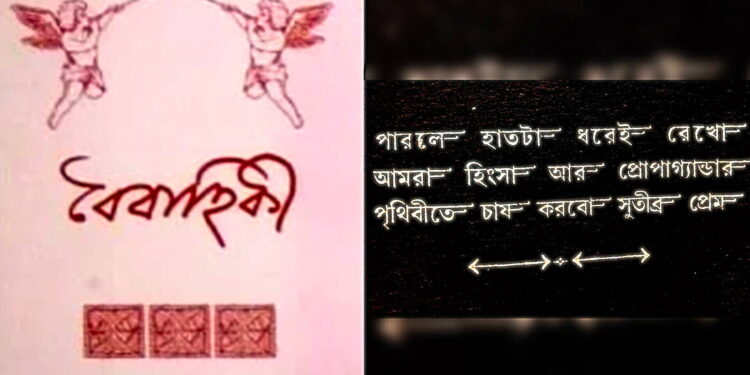 বৈবাহিকী
পারলে হাতটা ধরেই রেখো
আমরা হিংসা আর প্রোপাগ্যান্ডার
পৃথিবীতে চাষ করবো সুতীব্র প্রেম